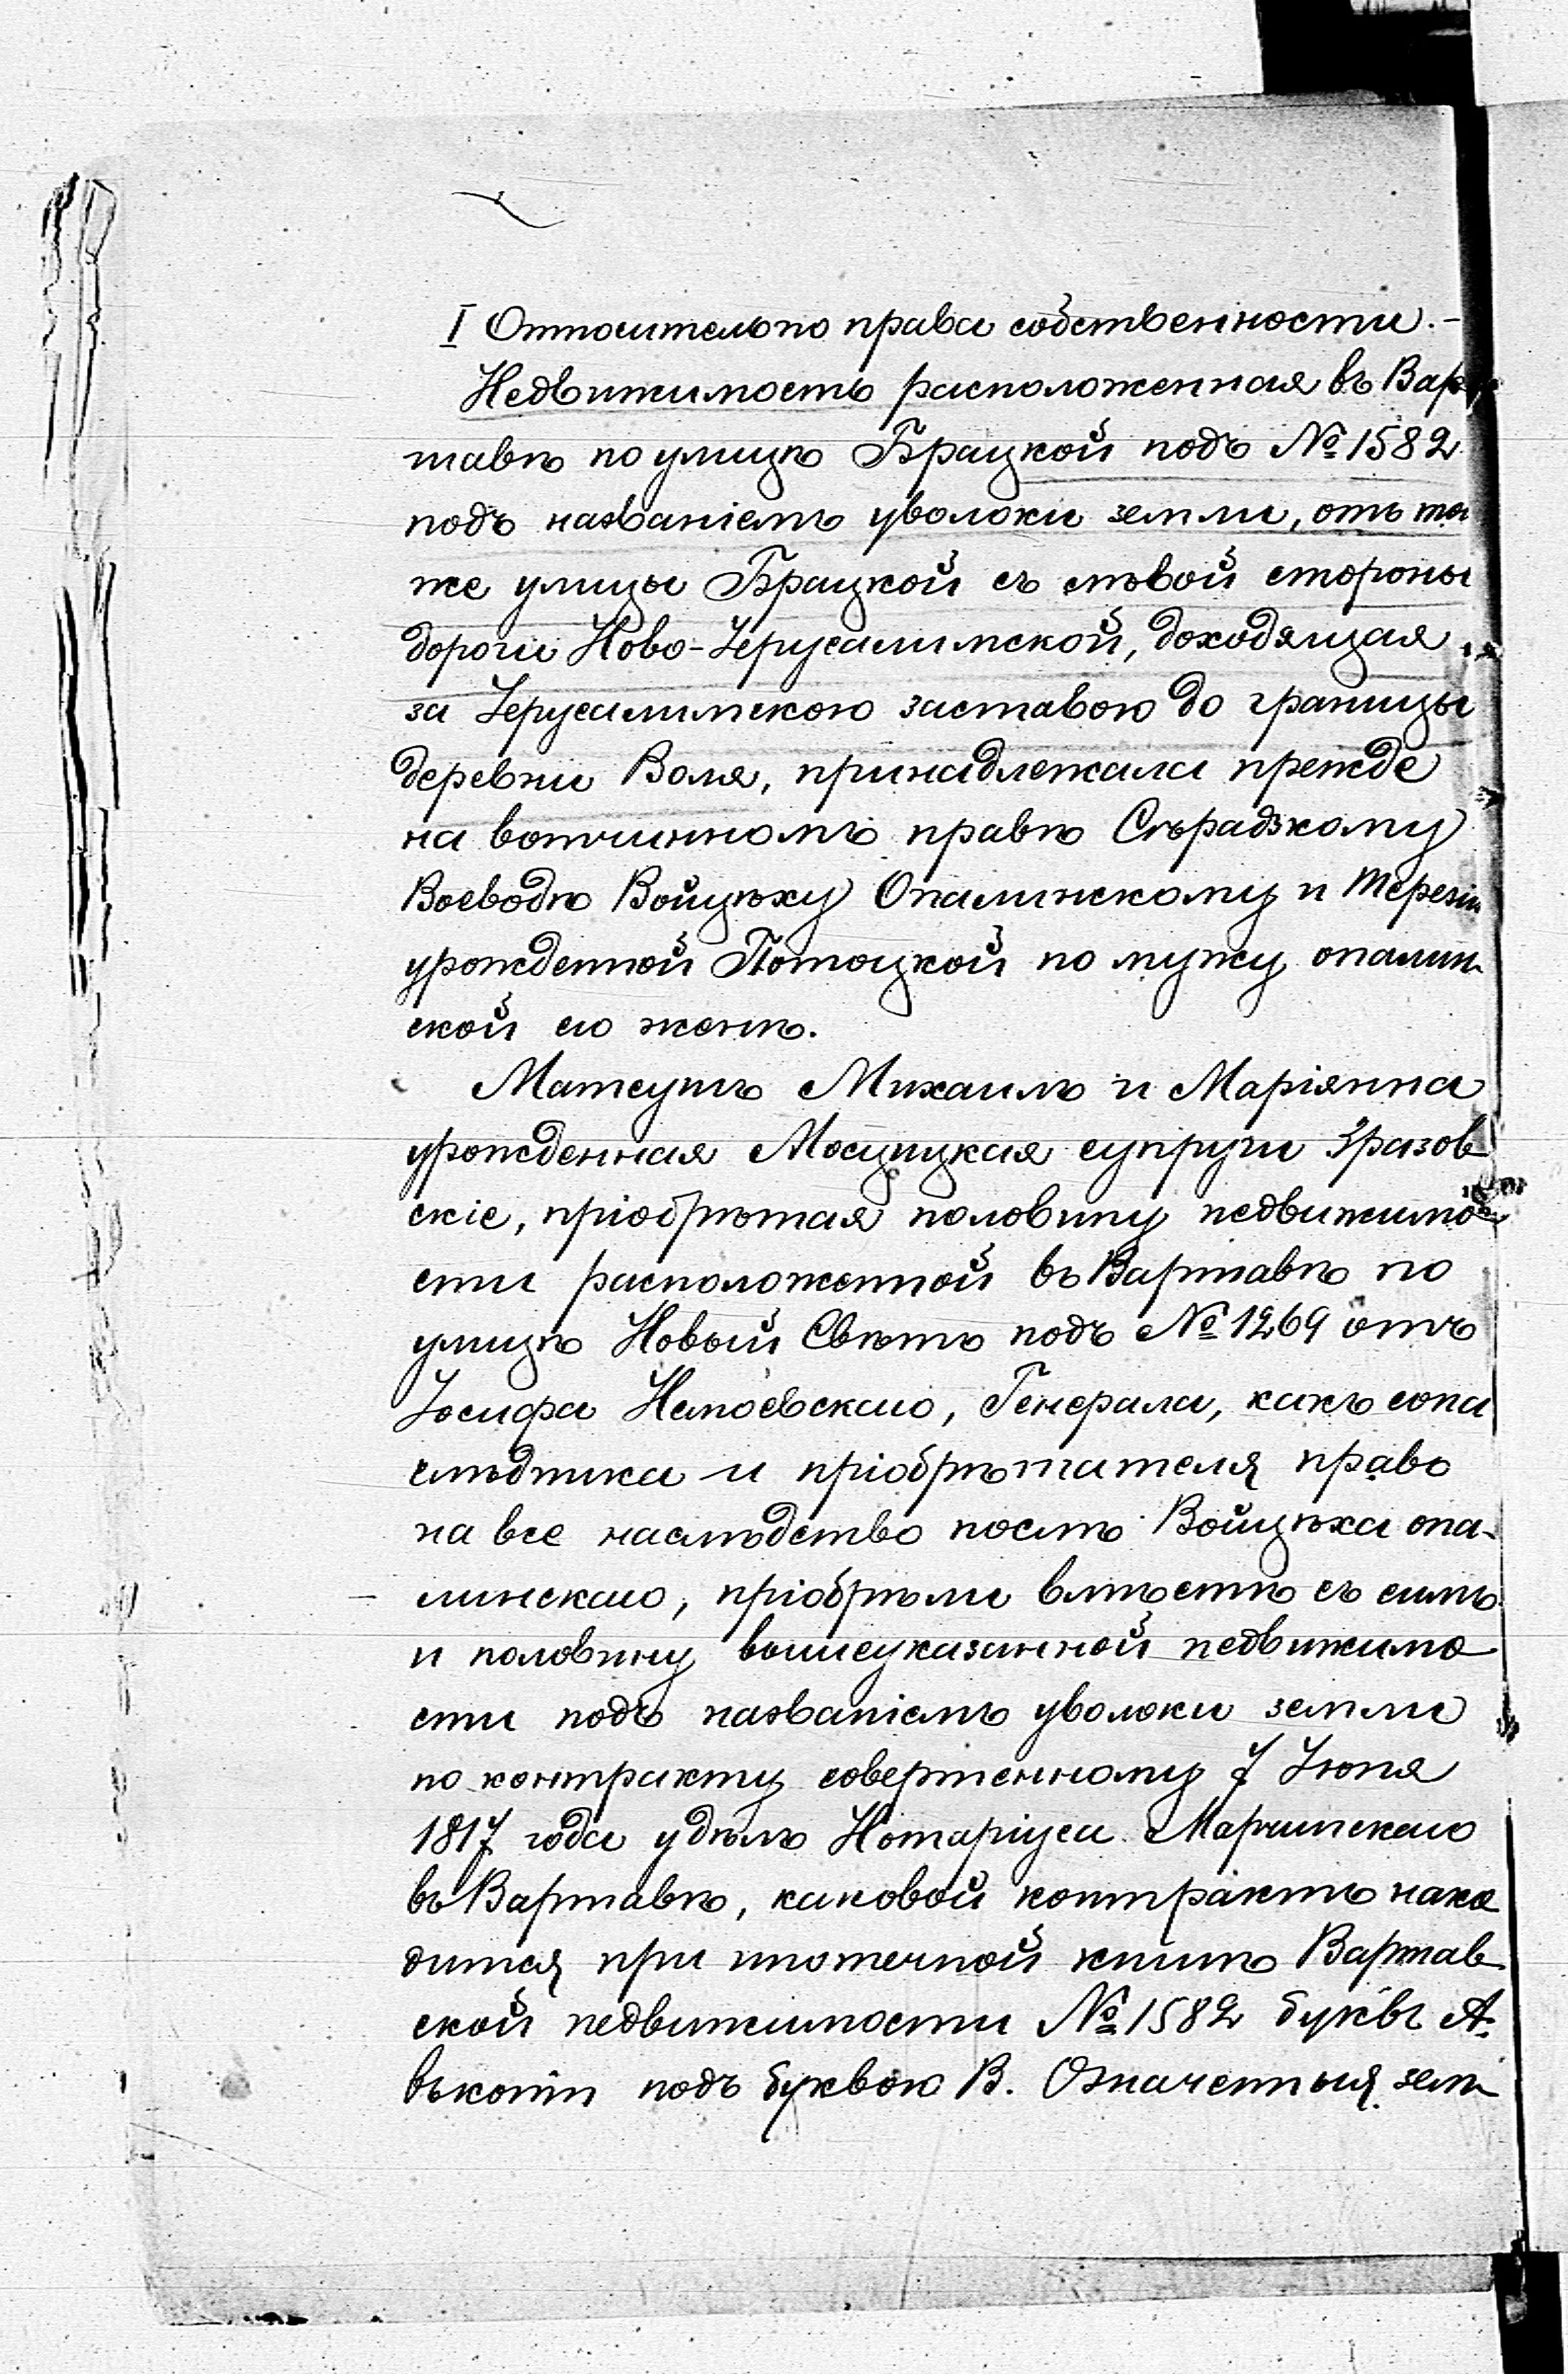 I Относительно права собственности.-
Недвижимость расположенная въ Вар-
шавѣ по улицѣ Брацкой подъ № 1582
подъ названіемъ уволоки земли, отъ той
же улицы Брацкой съ лѣвой стороны
дороги Ново-Іерусалимской, доходящая
за Іерусалимскою заставою до границы
деревни Воля, принадлежала прежде
на вотчинномъ правѣ Сѣрадзкому
Воеводѣ Войцѣху Опалинскому и Терезіи
урожденной Потоцкой по мужу опалин-
ской его женѣ.
Матеушъ Михаилъ и Маріянна
урожденная Мосцицкая супруги Зразов
скіе, пріобрѣтая половину недвижимо
сти расположенной въ Варшавѣ по
улицѣ Новый Свѣтъ подъ № 1269 отъ
Іосифа Немоевскаго, Генерала, какъ сона
слѣдника и пріобрѣтателя право
на все наслѣдство послѣ Войцѣха опа-
линскаго, пріобрѣли вмѣстѣ съ симъ
и половину вышеуказанной недвижимо
сти подъ названіемъ уволоки земли
по контракту совершенному 7 Іюня
1817 года у дѣлъ Нотаріуса
въ Варшавѣ, каковой контрактъ нахо
дится при ипотечной книгѣ Варшав
ской недвижимости № 1582 буквъ А.
въ копіи подъ буквою В. Означенныя зем-